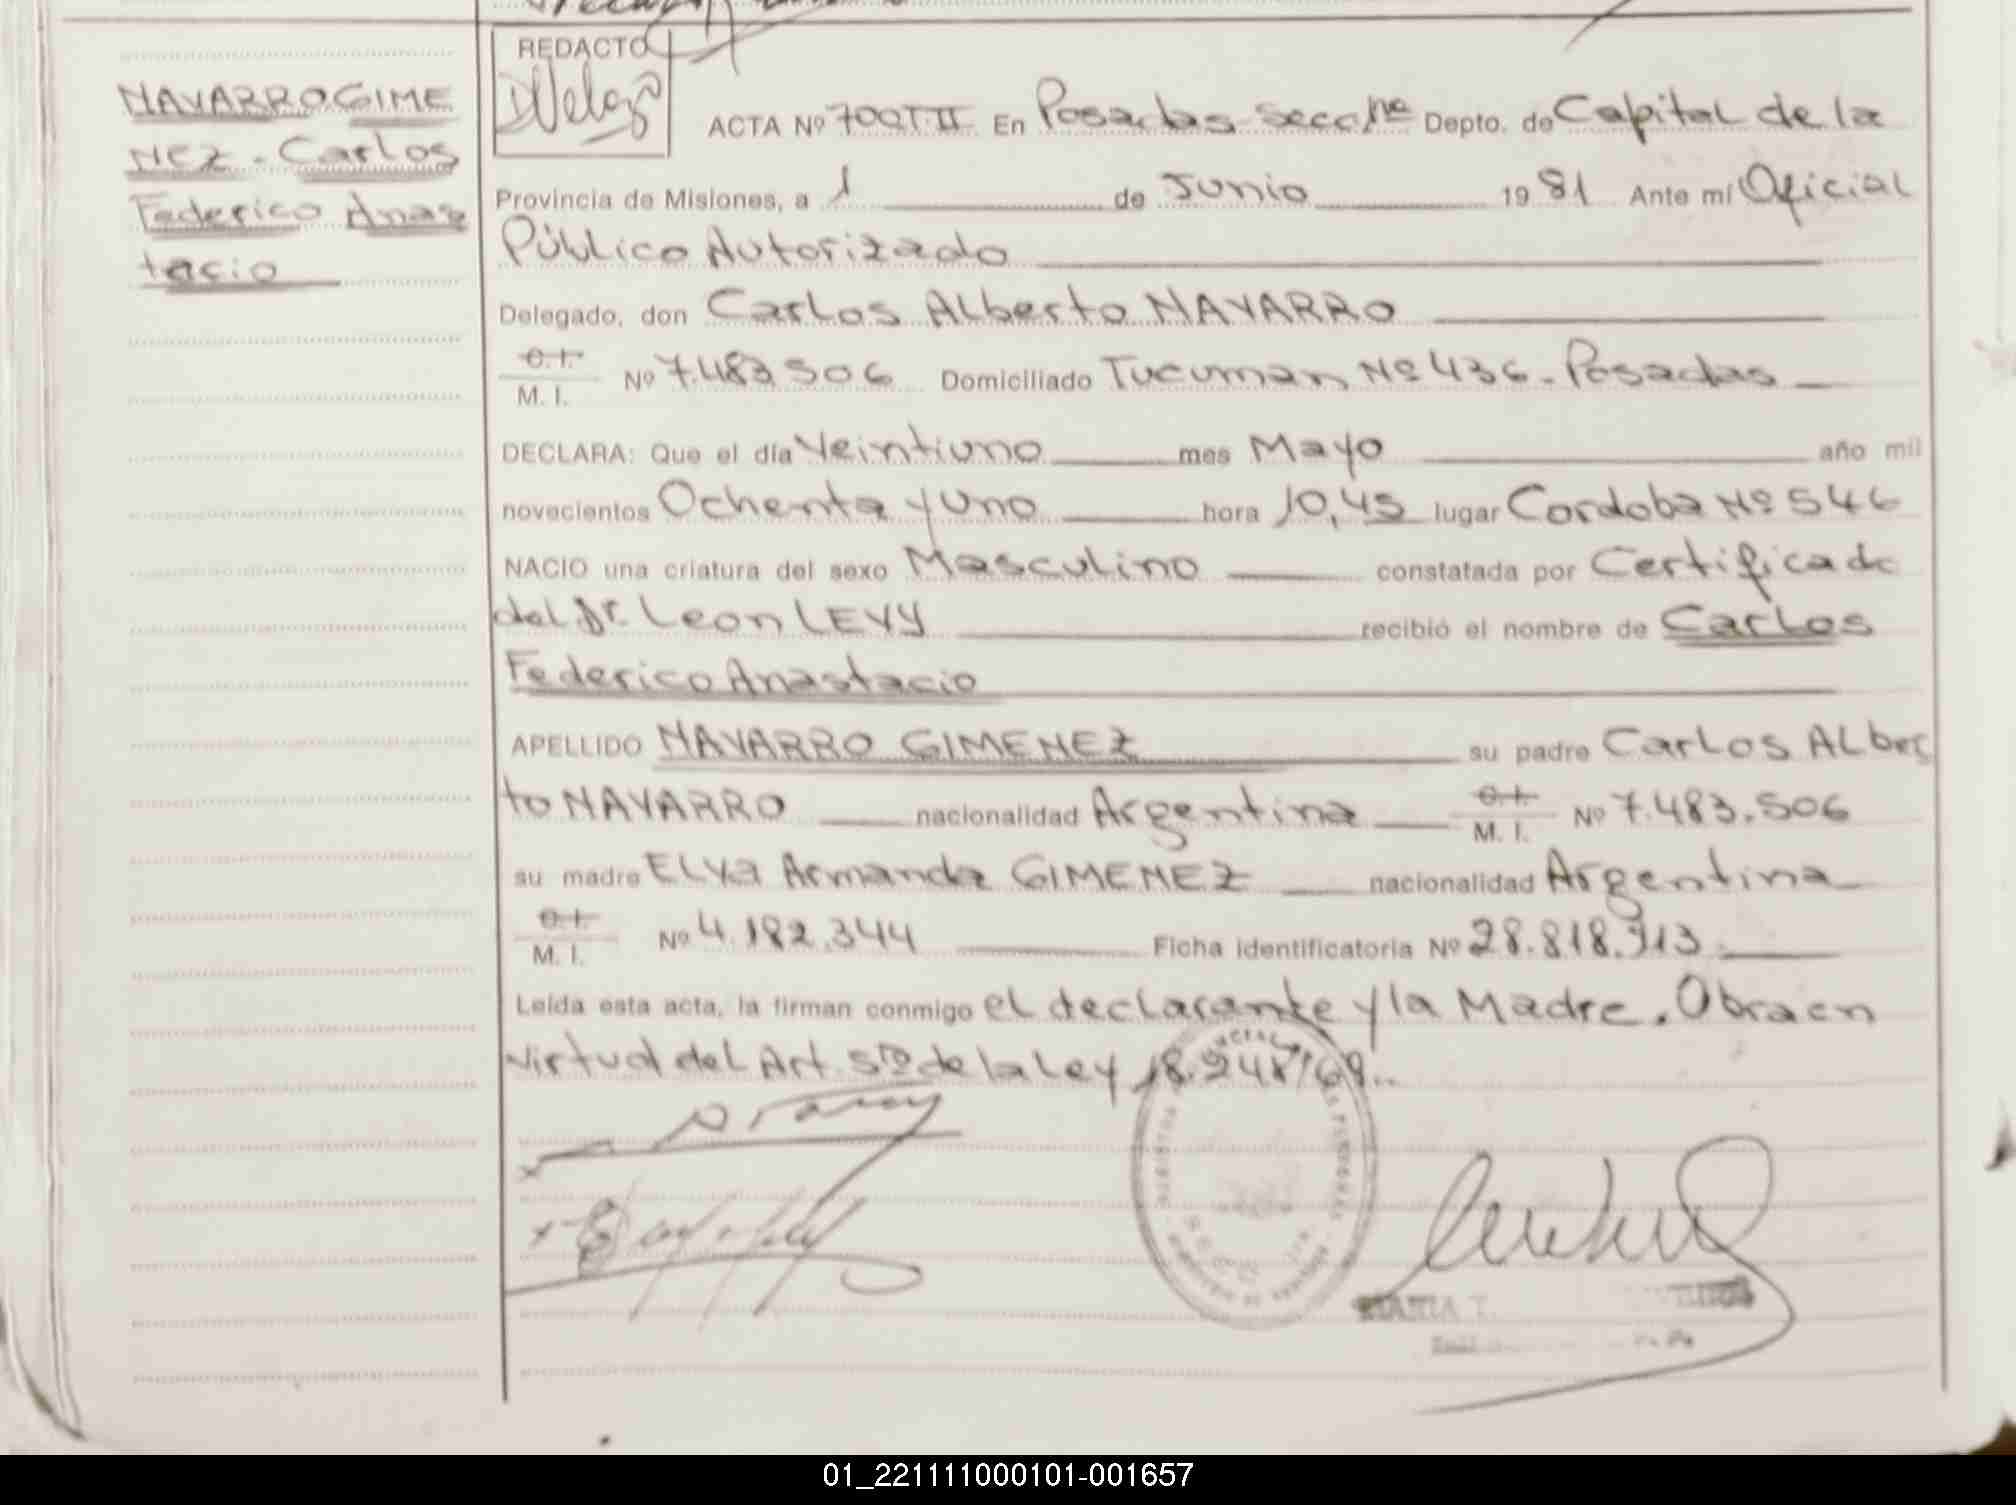 NAVARRO GIME
NEZ - Carlos
Federico Anas
tacio
REDACTO
ACTA Nº 700 T II En Posadas Secc 1ra Depto. de Capital de la
Provincia de Misiones, a 1 de Junio 1981 Ante mí Oficial
Público Autorizado
Delegado, don Carlos Alberto NAVARRO
C. I.
M. I. Nº 7.483 506 Domiciliado Tucuman Nº 436 - Posadas
DECLARA: Que el día Veintiuno mes Mayo año mil
novecientos Ochenta y Uno hora 10,45 lugar Cordoba Nº 546
NACIO una criatura del sexo Masculino constatada por Certificado
del Dr. Leon LEVY recibió el nombre de Carlos
Federico Anastacio
APELLIDO NAVARRO GIMENEZ su padre Carlos Alber
to NAVARRO nacionalidad Argentina C. I. M. I. Nº 7.483.506
su madre Elva Armanda GIMENEZ nacionalidad Argentina
C. I.
M. I. Nº 4.182.344 Ficha identificatoria Nº 28.818.913
Leída esta acta, la firman conmigo el declarante y la Madre. Obra en
virtud del Art. 5to de la Ley 18.248/69..
MARIA T.
01_221111000101-001657